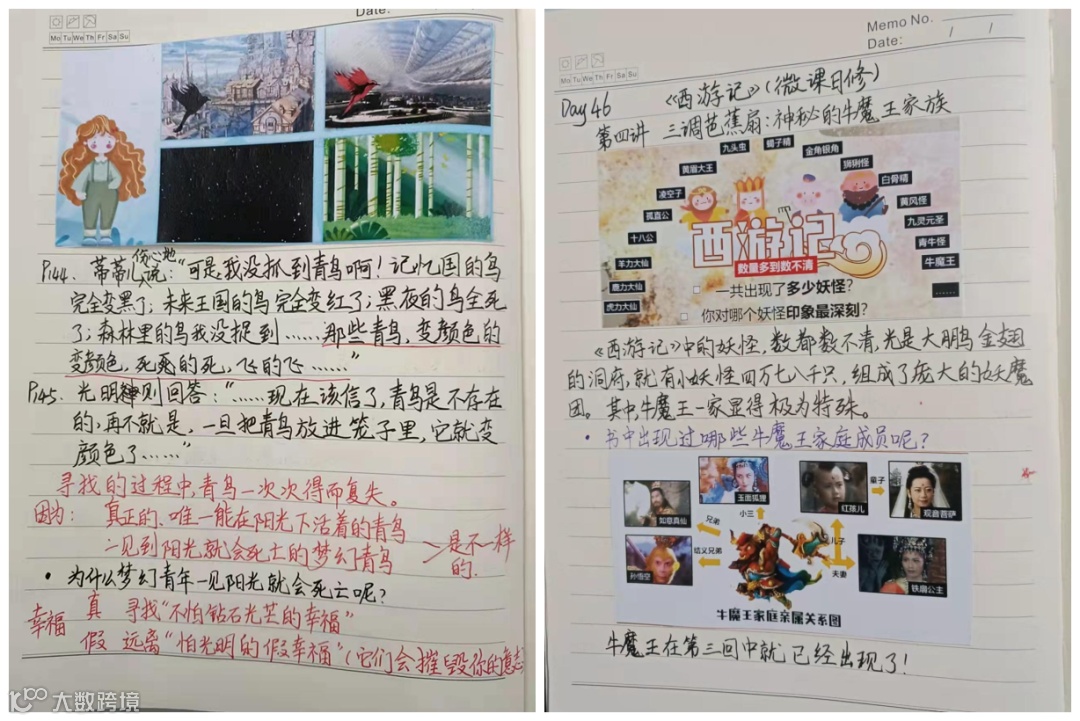 Date:
Mo Tu We Th Fr Sa Su
P144. 蒂蒂儿伤心地说："可是,我没抓到青鸟啊！记忆国的鸟
完全变黑了；未来王国的鸟完全变红了；黑夜的鸟全死
了；森林里的鸟我没捉到……那些青鸟，变颜色的
变颜色，死死的死，飞的飞……"
P145. 光明则回答："……现在该信了，青鸟是不存在
的，再不就是，一旦把青鸟放进笼子里，它就变
颜色了……"
寻找的过程中，青鸟一次次得而复失。
因为：真正的、唯一能在阳光下活着的青鸟
一见到阳光就会死亡的梦幻青鸟
是不一样的.
• 为什么梦幻青年一见阳光就会死亡呢？
幸福
真 寻找"不怕钻石光芒的幸福"
假 远离"怕光明的假幸福"(它们会摧毁你的意志
大数跨境
Memo No.
Date: / /
Mo Tu We Th Fr Sa Su
Day 46 《西游记》(微课日修)
第四讲 三调芭蕉扇：神秘的牛魔王家族
九头虫
蝎子精
金角银角
黄眉大王
狮猁怪
凌空子
白骨精
孤直公
黄风怪
十八公
九灵元圣
羊力大仙
青牛怪
鹿力大仙
牛魔王
虎力大仙
……
西游记
数量多到数不清
一共出现了多少妖怪？
你对哪个妖怪印象最深刻？
《西游记》中的妖怪，数都数不清，光是大鹏金翅
的洞府，就有小妖怪四万七八千只，组成了庞大的妖魔
团。其中，牛魔王一家显得极为特殊。
• 书中出现过哪些牛魔王家庭成员呢？
玉面狐狸
红孩儿
童子
观音菩萨
如意真仙
兄弟
小三
孙悟空
结义兄弟
儿子
夫妻
铁扇公主
牛魔王家庭亲属关系图
牛魔王在第三回中就已经出现了！